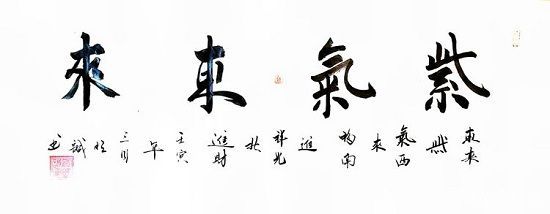 紫氣東來
東來紫氣西來福南進祥光北進財
壬寅年三月